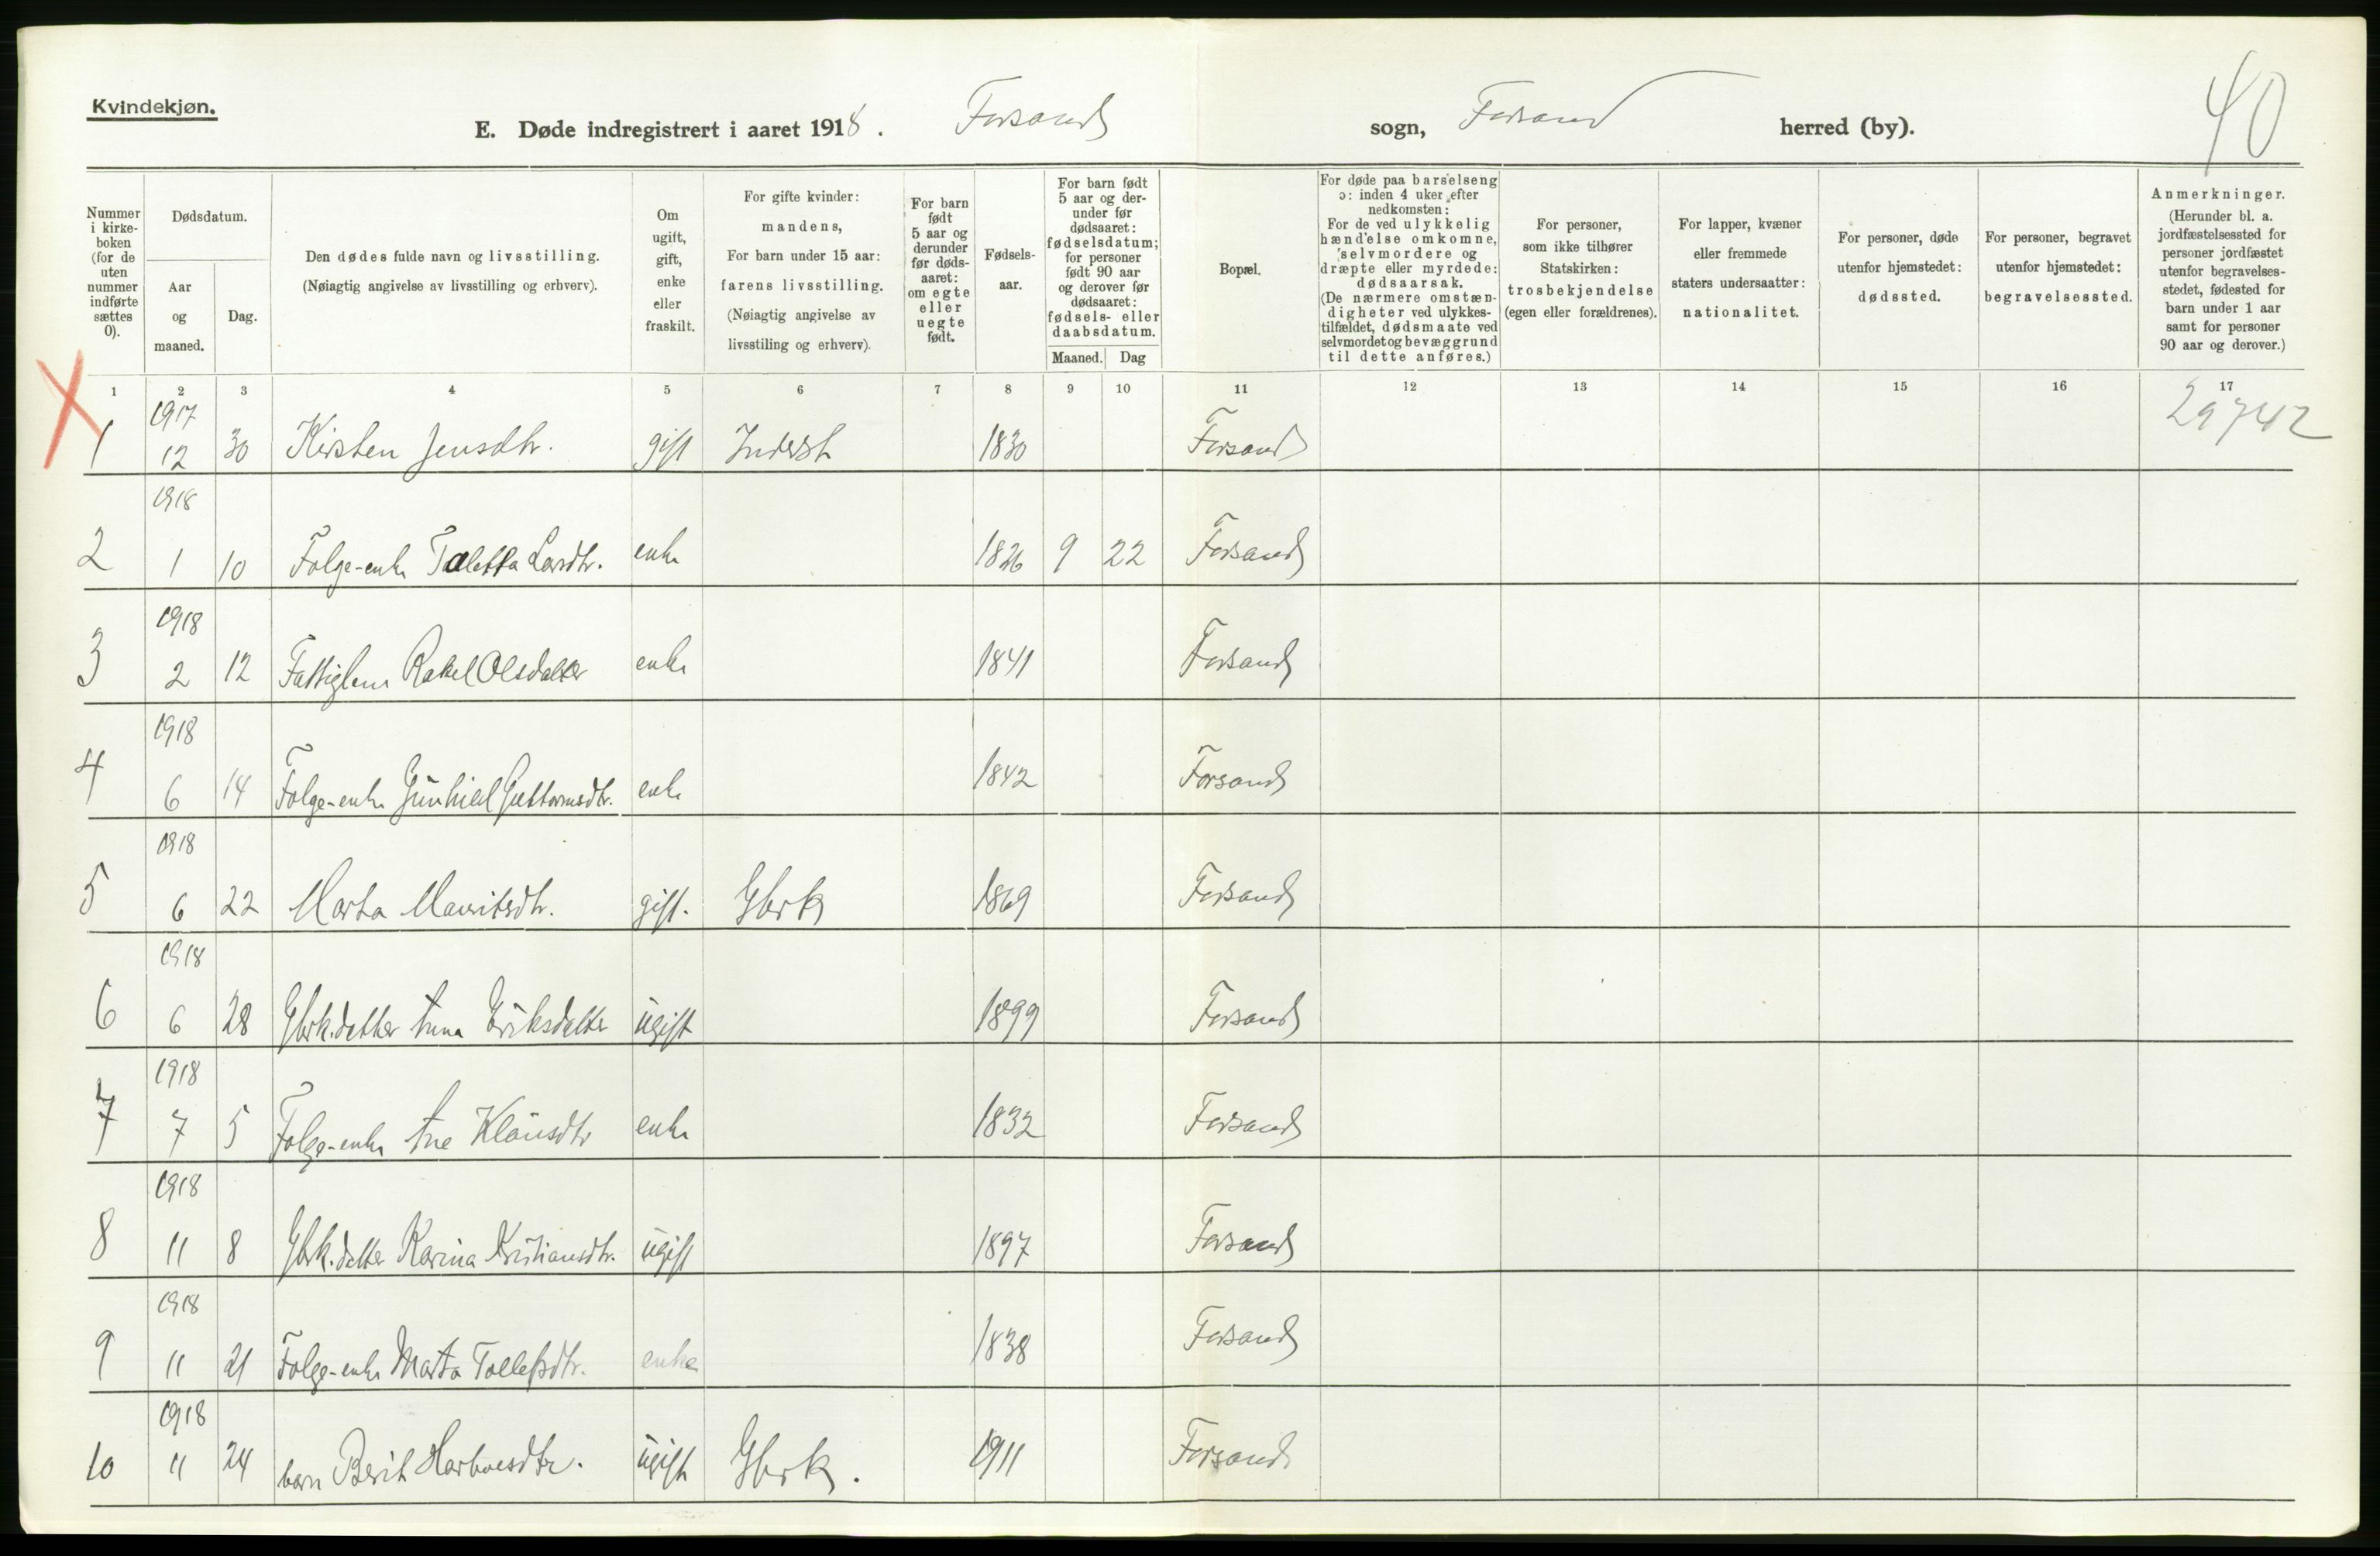 Kvindekjøn.
E. Døde indregistrert i aaret 1918. Forsand sogn, Forsand herred (by).
40
Nummer i kirke-boken (for de uten nummer indførte sættes 0).
Dødsdatum.
Aar og maaned.
Dag.
Den dødes fulde navn og livsstilling.
(Nøiagtig angivelse av livsstilling og erhverv).
Om ugift, gift, enke eller fraskilt.
For gifte kvinder: mandens,
For barn under 15 aar: farens livsstilling.
(Nøiagtig angivelse av livsstiling og erhverv).
For barn født 5 aar og derunder før døds-aaret: om egte eller uegte født.
Fødsels-aar.
For barn født 5 aar og der-under før dødsaaret: fødselsdatum; for personer født 90 aar og derover før dødsaaret: fødsels- eller daabsdatum.
Maaned. Dag
Bopæl.
For døde paa barselseng ɔ: inden 4 uker efter nedkomsten:
For de ved ulykkelig hændelse omkomne, selvmordere og dræpte eller myrdede: dødsaarsak.
(De nærmere omstæn-digheter ved ulykkes-tilfældet, dødsmaate ved selvmordet og bevæggrund til dette anføres.)
For personer, som ikke tilhører Statskirken: trosbekjendelse (egen eller forældrenes).
For lapper, kvæner eller fremmede staters undersaatter: nationalitet.
For personer, døde utenfor hjemstedet: dødssted.
For personer, begravet utenfor hjemstedet: begravelsessted.
Anmerkninger.
(Herunder bl. a. jordfæstelsessted for personer jordfæstet utenfor begravelses-stedet, fødested for barn under 1 aar samt for personer 90 aar og derover.)
1 2 3 4 5 6 7 8 9 10 11 12 13 14 15 16 17
29742
1917
1 12 30 Kirsten Jensdtr. gift Inderst 1830 Forsand
1918
2 1 10 Folge-enke Taletta Larsdtr. enke 1826 9 22 Forsand
1918
3 2 12 Fattiglem Rakel Olsdatter enke 1841 Forsand
1918
4 6 14 Folge-enke Gunhild Guttormsdtr. enke 1842 Forsand
1918
5 6 22 Marta Mauritsdtr. gift. Gbrk 1869 Forsand
1918
6 6 28 Gbrk.datter Anna Eriksdatter ugift 1899 Forsand
1918
7 7 5 Folge-enke Ane Klausdtr enke 1832 Forsand
1918
8 11 8 Gbrk.datter Karina Kristiansdtr. ugift 1897 Forsand
1918
9 11 21 Folge-enke Marta Tollefsdtr. enke 1838 Forsand
1918
10 11 24 barn Berit ugift Gbrk. 1911 Forsand